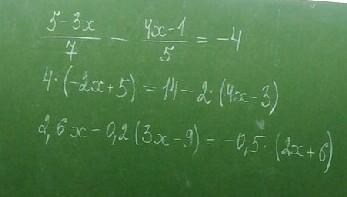 (5-3x)/7 - (4x-1)/5 = -4
4·(-2x+5) = 14-2(4x-3)
2,6x-0,2(3x-9) = -0,5·(2x+6)